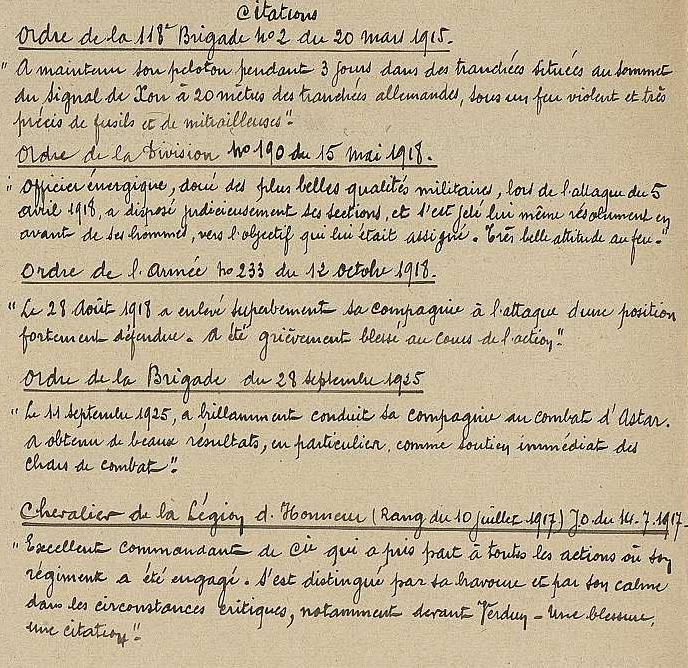 Citations
Ordre de la 118e Brigade no2 du 20 mars 1915.
"A maintenu son peloton pendant 3 jours dans des tranchées situées au sommet
du Signal de Xon à 20 mètres des tranchées allemandes, sous un feu violent et très
précis de fusils et de mitrailleuses".
Ordre de la Division no 190 du 15 mai 1918.
"Officier énergique, doué des plus belles qualités militaires, lors de l'attaque du 5
avril 1918, a disposé judicieusement ses sections, et s'est jeté lui même résolument en
avant de ses hommes, vers l'objectif qui lui était assigné. Très belle attitude au feu."
Ordre de l'Armée no 233 du 12 octobre 1918.
"Le 28 Août 1918 a enlevé superbement sa compagnie à l'attaque d'une position
fortement défendue. A été grièvement blessé au cours de l'action".
Ordre de la Brigade du 28 septembre 1925
"Le 11 septembre 1925, a brillamment conduit sa compagnie au combat d'Astar.
A obtenu de beaux résultats, en particulier, comme soutien immédiat des
chars de combat".
Chevalier de la Légion d'Honneur (Rang du 10 juillet 1917) J.O. du 14-7-1917-
"Excellent commandant de Cie qui a pris part à toutes les actions où son
régiment a été engagé. S'est distingué par sa bravoure et par son calme
dans les circonstances critiques, notamment devant Verdun - Une blessure,
une citation".